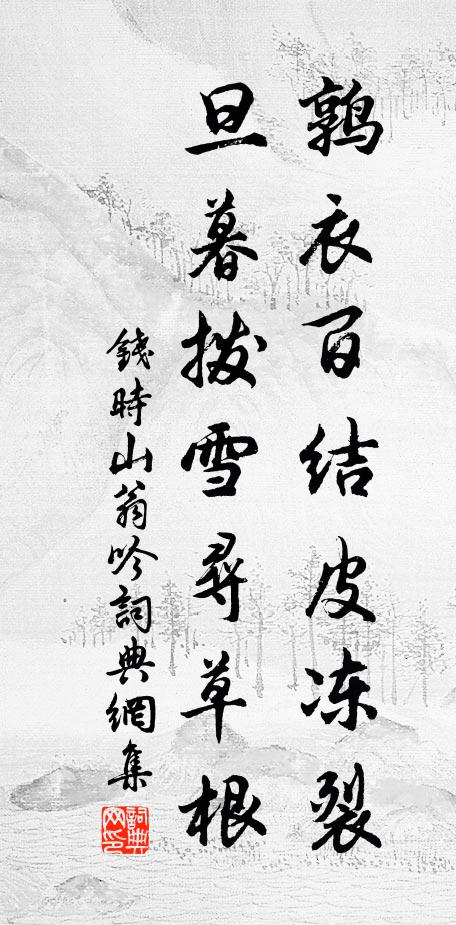 鹑衣百结皮冻裂
旦暮拨雪寻草根
錢時山翁吟詞典網集
詞典網印